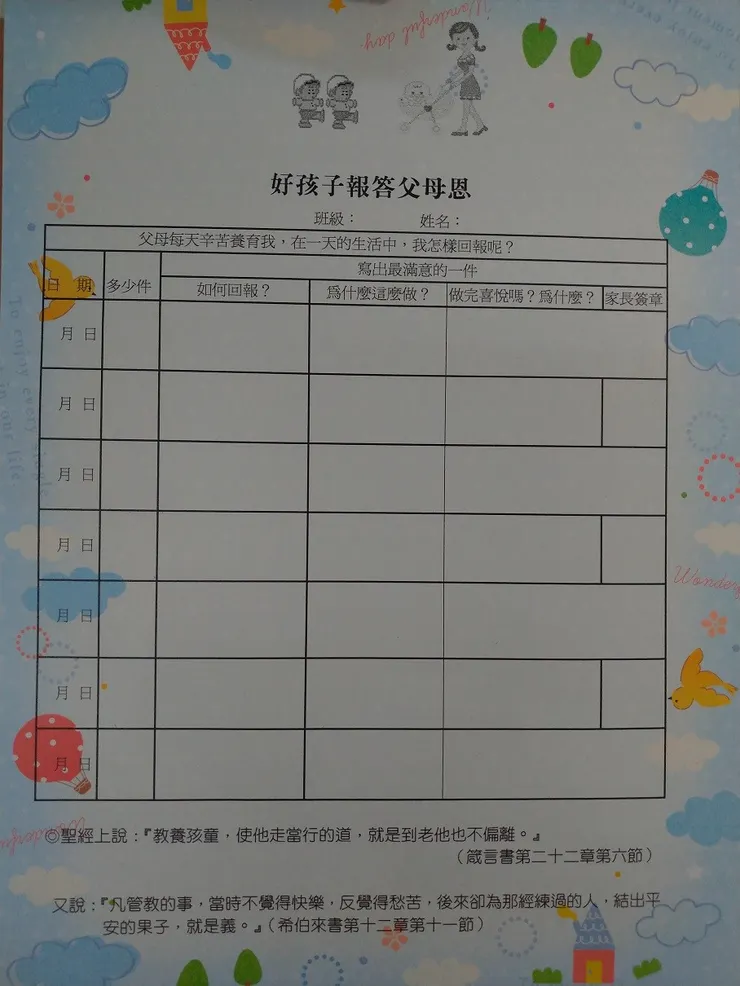 Wonderful day
好孩子報答父母恩
班級： 姓名：
父母每天辛苦養育我，在一天的生活中，我怎樣回報呢？
日 期 多少件 寫出最滿意的一件
如何回報？ 爲什麼這麼做？ 做完喜悅嗎？爲什麼？ 家長簽章
月 日
月 日
月 日
月 日
月 日
月 日
月 日
◎聖經上說：『教養孩童，使他走當行的道，就是到老他也不偏離。』
（箴言書第二十二章第六節）
又說：『凡管教的事，當時不覺得快樂，反覺得愁苦，後來卻為那經練過的人，結出平
安的果子，就是義。』（希伯來書第十二章第十一節）